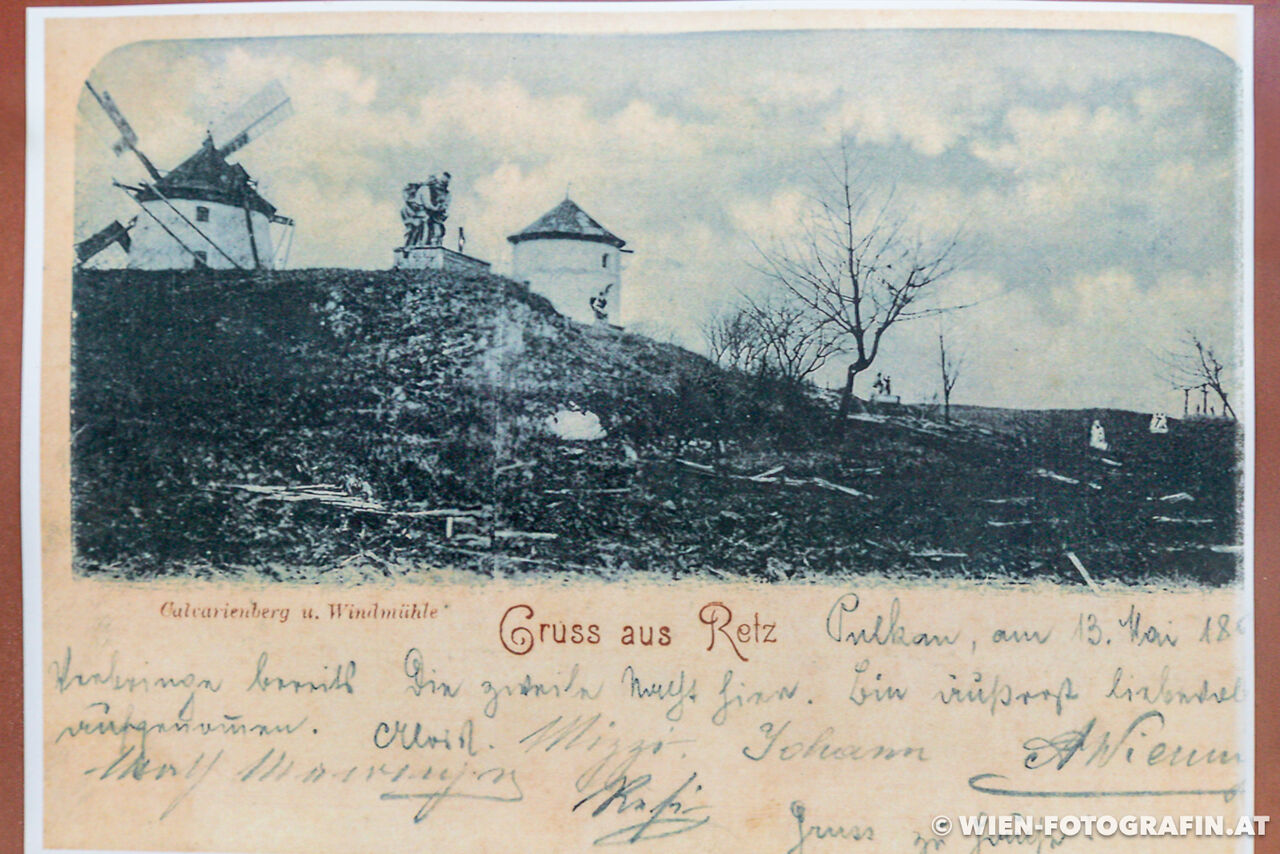 Calvarienberg u. Windmühle
Gruss aus Retz
Pulkau, am 13. Mai 18
Verbringe bereits die zweite Nacht hier. Bin äußerst liebevol
aufgenommen. Alois. Mizzi. Johann
Resi
Gruss zu Hause
© WIEN-FOTOGRAFIN.AT